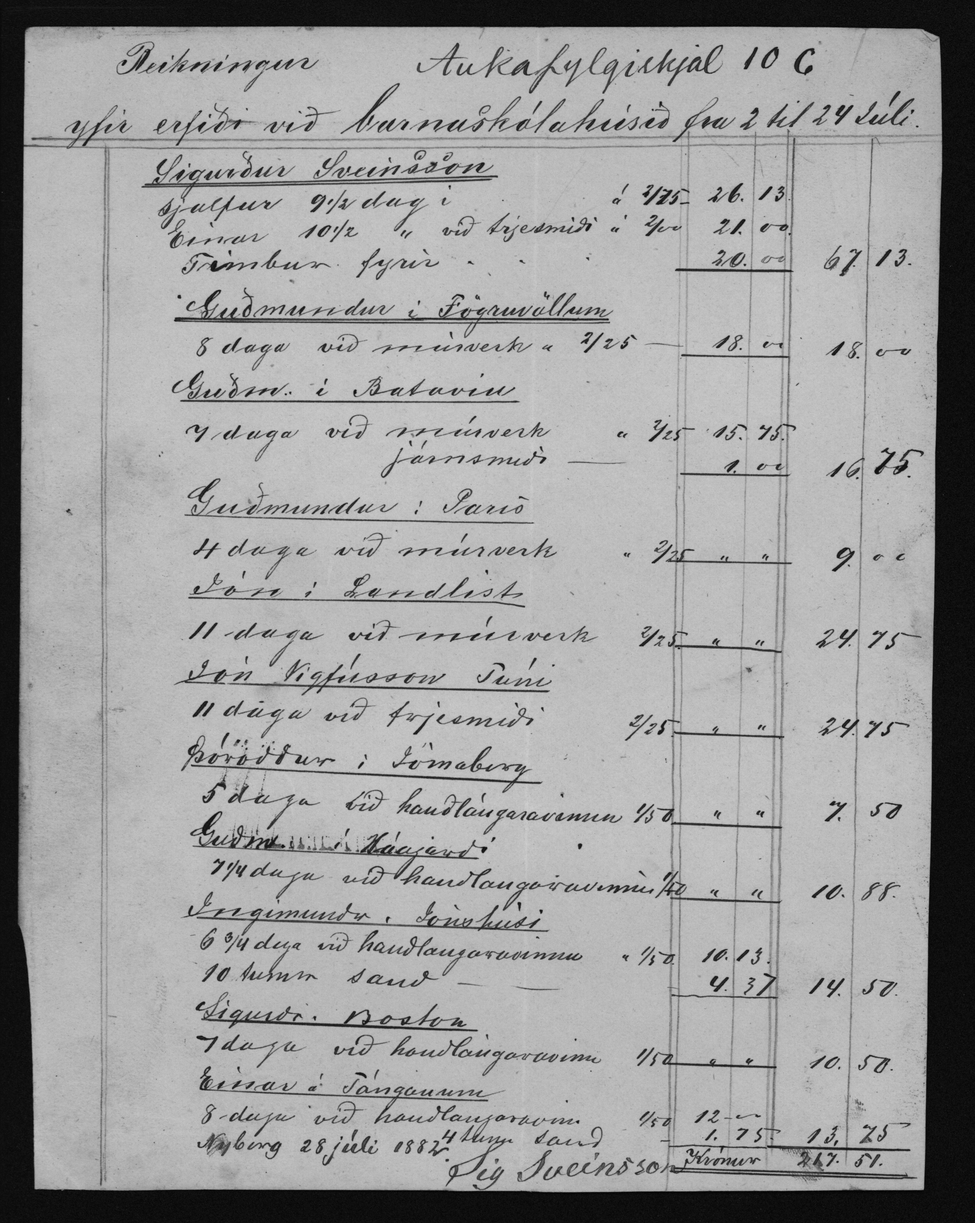 Reikningur Aukafylgiskjal 10 C
yfir erfiði við barnaskólahúsið fra 2 til 24 Júli.
Sigurður Sveinsson
sjalfur 9 1/2 dag i á 2/75 26. 13.
Einar 10 1/2 " við trjesmiði á 2/00 21. 00.
Timbur fyrir . . . 20. 00 67. 13.
Guðmundur i Fögruvöllum
8 daga við múrverk " 2/25 — 18. 00 18. 00
Guðm. i Bataviu
7 daga við múrverk " 2/25 15. 75.
járnsmiði — 1. 00 16. 75.
Guðmundur i Paris
4 daga við múrverk " 2/25 " " 9. 00
Jón i Landlist
11 daga við múrverk 2/25 " " 24. 75
Jón Vigfússon Túni
11 daga við trjesmiði 2/25 " " 24. 75
Þóroddur i Jómaborg
5 daga við handlángaravinnu 1/50 " " 7. 50
Guðm. á Háagarði
7 1/4 daga við handlangaravinnu 1/50 " " 10. 88.
Ingimundr. Jónshúsi
6 3/4 daga við handlangaravinnu " 1/50 10. 13.
10 tunnr sand — — 4. 37 14. 50.
Sigurðr. Boston
7 daga við handlángaravinnu 1/50 " " 10. 50.
Einar á Tánganum
8 daga við handlangaravinnu 1/50 12 – "
4 tunnr sand – 1. 75 13. 75
Nyborg 28 júli 1882 Krónur 217. 51.
Sig Sveinsson